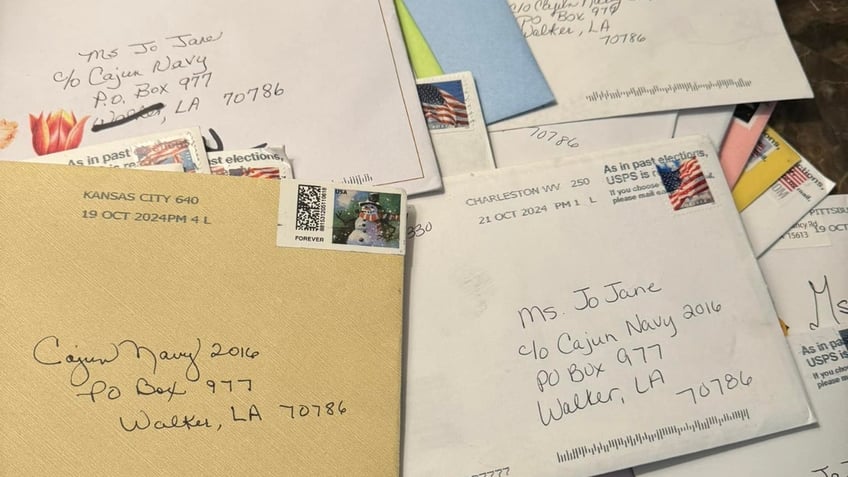 Ms Jo Jane
c/o Cajun Navy
P.O. Box 977
Walker, LA 70786
c/o Cajun Navy
PO Box 977
Walker, LA
70786
70786
As in past
elections,
KANSAS CITY 640
19 OCT 2024PM 4 L
USA
FOREVER
Cajun Navy 2016
PO Box 977
Walker, LA 70786
CHARLESTON WV 250
21 OCT 2024 PM 1 L
As in past elections,
USPS is
If you choose
please mail
330
Ms. Jo Jane
c/o Cajun Navy 2016
PO Box 977
Walker, LA
70786
PITTSBU
15613
19 OCT
Ms
As in pa
USPS is
If you cho
please m
77777